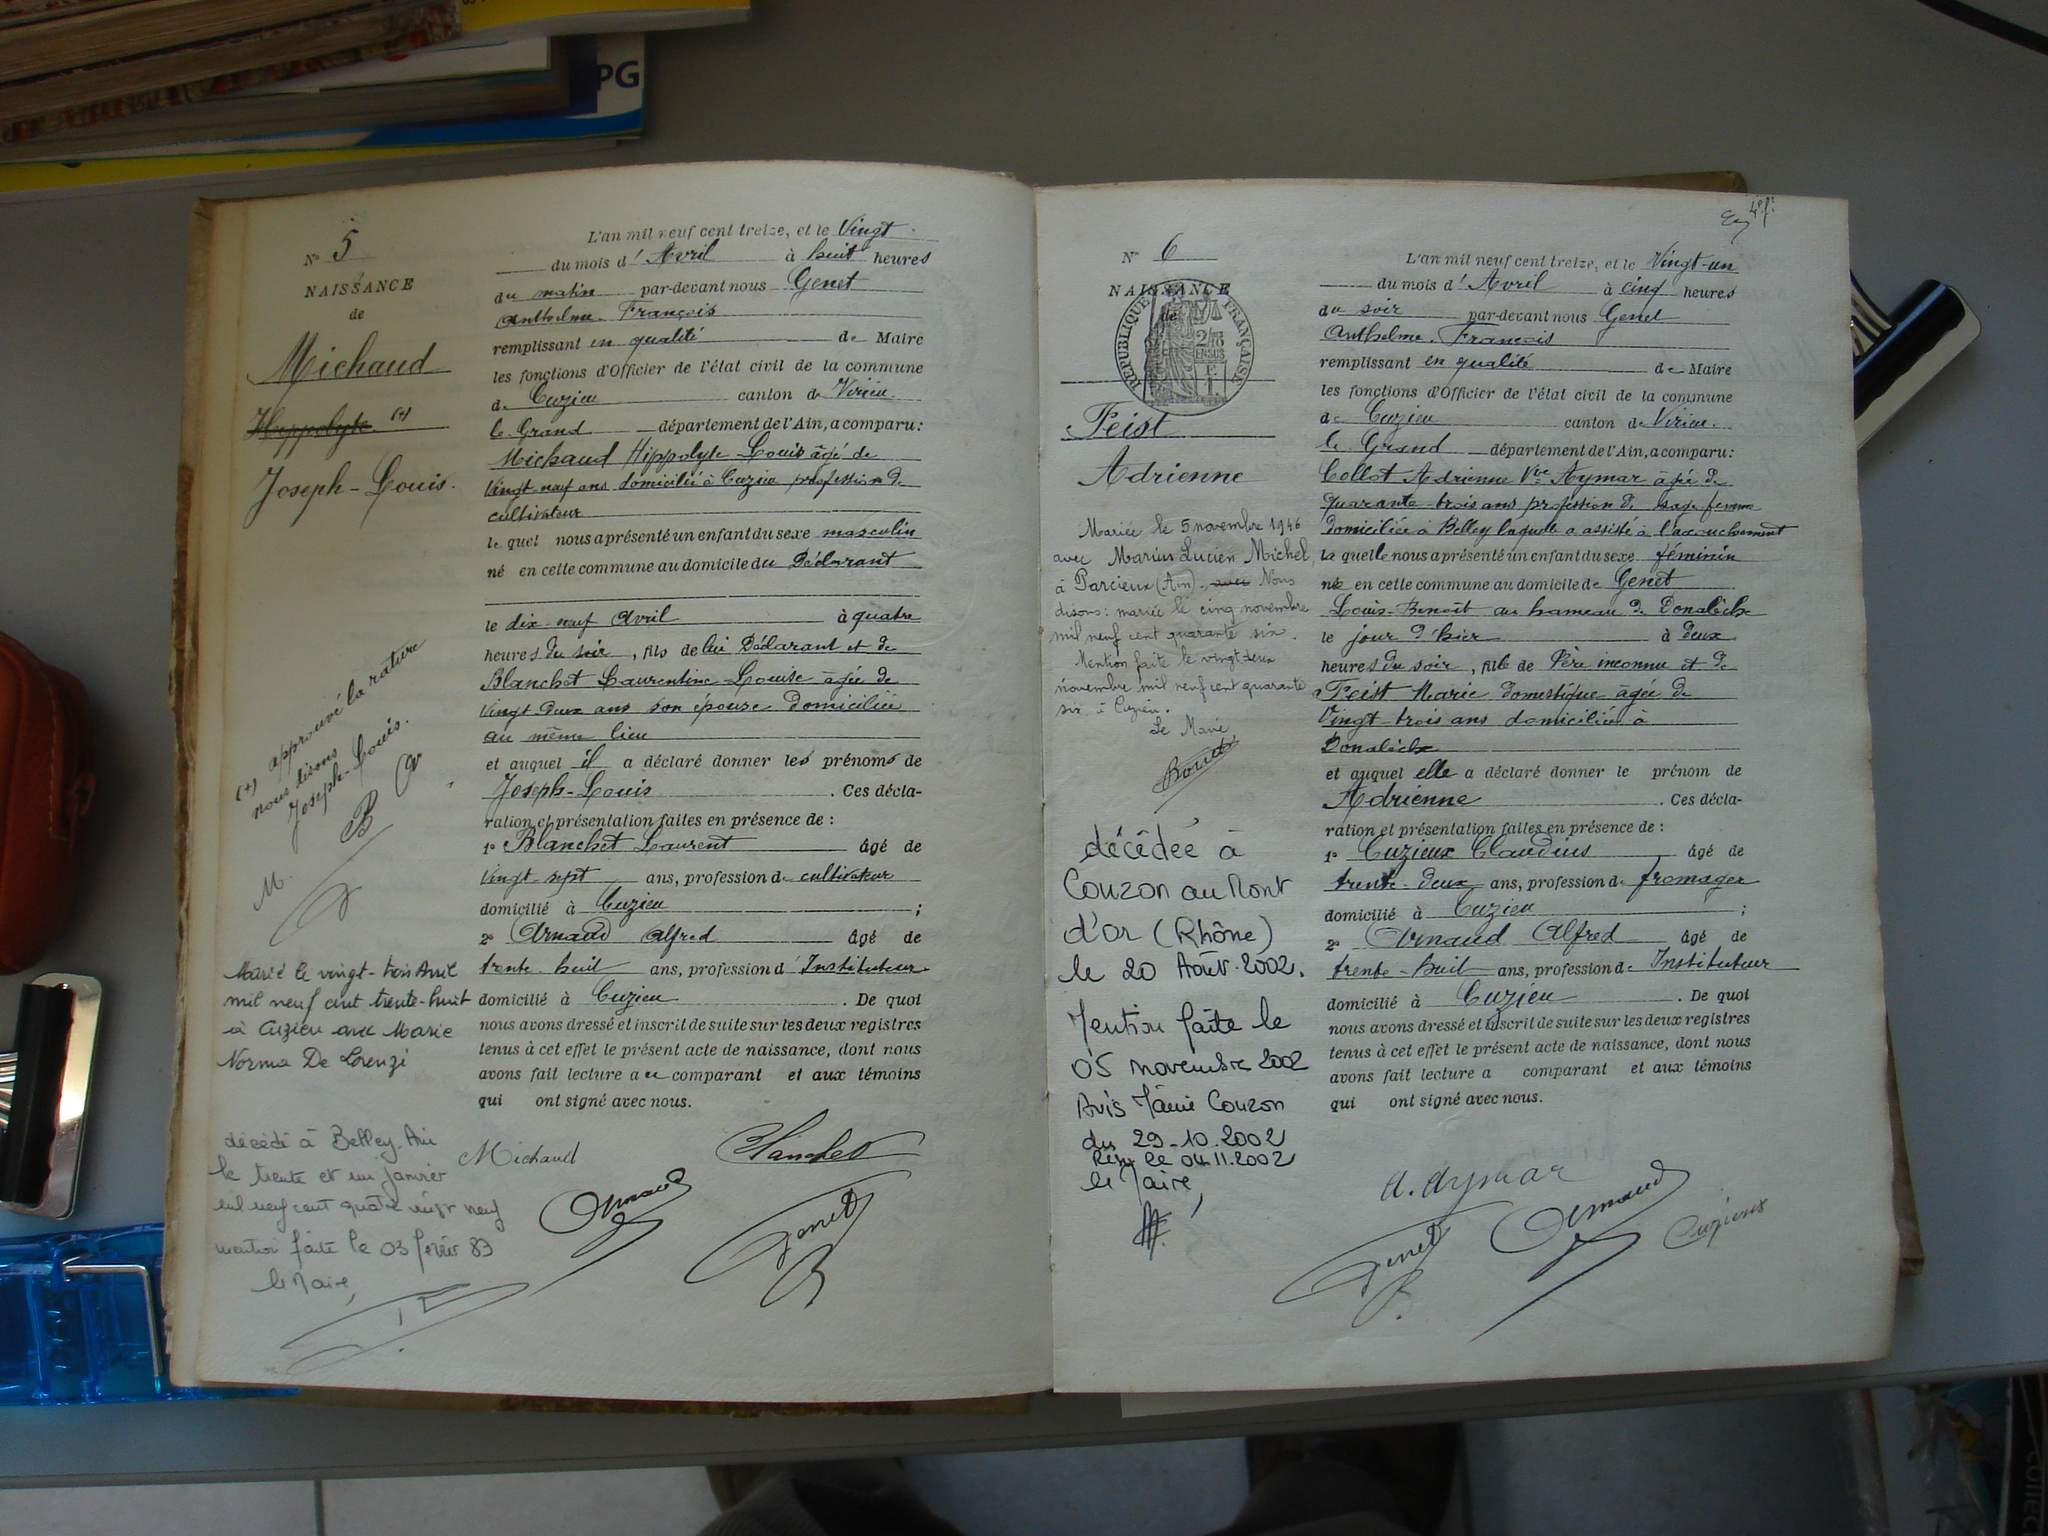 PG
N° 5
NAISSANCE
de
Michaud
Hippolyte (+)
Joseph-Louis.
(+) approuvé la rature
nous disons
Joseph-Louis.
M.
B
Marié le vingt-trois Avril
mil neuf cent trente-huit
à Cuzieu avec Marie
Norma De Lorenzi
décédé à Belley Ain
le trente et un janvier
mil neuf cent quatre vingt neuf
mention faite le 03 février 89
le Maire,
L'an mil neuf cent treize, et le Vingt
du mois d'Avril à huit heures
du matin par-devant nous Genet
Anthelme François
remplissant en qualité de Maire
les fonctions d'Officier de l'état civil de la commune
de Cuzieu canton de Virieu
le Grand département de l'Ain, a comparu :
Michaud Hippolyte Louis âgé de
Vingt neuf ans domicilié à Cuzieu profession de
cultivateur
lequel nous a présenté un enfant du sexe masculin
né en cette commune au domicile du Déclarant
le dix-neuf Avril à quatre
heures du soir, fils de lui Déclarant et de
Blanchet Laurentine Louise âgée de
Vingt Deux ans son épouse Domiciliée
au même lieu
et auquel il a déclaré donner les prénoms de
Joseph-Louis. Ces décla-
ration et présentation faites en présence de :
1° Blanchet Laurent âgé de
Vingt sept ans, profession de cultivateur
domicilié à Cuzieu ;
2° Arnaud Alfred âgé de
trente-huit ans, profession d'Instituteur
domicilié à Cuzieu. De quoi
nous avons dressé et inscrit de suite sur les deux registres
tenus à cet effet le présent acte de naissance, dont nous
avons fait lecture au comparant et aux témoins
qui ont signé avec nous.
Michaud
Blanchet
Arnaud
Genet
N° 6
NAISSANCE
de
RÉPUBLIQUE FRANÇAISE
Feist
Adrienne
Mariée le 5 novembre 1946
avec Marius Lucien Michel,
à Parcieux (Ain). avec Nous
disons : mariée le cinq novembre
mil neuf cent quarante six.
Mention faite le vingt deux
novembre mil neuf cent quarante
six à Cuzieu.
Le Maire
décédée à
Couzon au Mont
d'or (Rhône)
le 20 Août 2002.
Mention faite le
05 novembre 2002
Avis Mairie Couzon
du 29-10.2002
Reçu le 04.11.2002
le Maire,
L'an mil neuf cent treize, et le Vingt-un
du mois d'Avril à cinq heures
du soir par-devant nous Genet
Anthelme François
remplissant en qualité de Maire
les fonctions d'Officier de l'état civil de la commune
de Cuzieu canton de Virieu
le Grand département de l'Ain, a comparu :
Collot Adrienne Vve Aymar âgée de
quarante-trois ans profession de sage femme
domiciliée à Belley laquelle a assisté à l'accouchement
laquelle nous a présenté un enfant du sexe féminin
née en cette commune au domicile de Genet
Louis-Benoît au hameau de Donalèche
le jour d'hier à deux
heures du soir, fille de Père inconnu et de
Feist Marie domestique âgée de
Vingt-trois ans domiciliée à
Donalèche
et auquel elle a déclaré donner le prénom de
Adrienne. Ces décla-
ration et présentation faites en présence de :
1° Cuzieux Claudius âgé de
trente-deux ans, profession de fromager
domicilié à Cuzieu ;
2° Arnaud Alfred âgé de
trente-huit ans, profession de Instituteur
domicilié à Cuzieu. De quoi
nous avons dressé et inscrit de suite sur les deux registres
tenus à cet effet le présent acte de naissance, dont nous
avons fait lecture a comparant et aux témoins
qui ont signé avec nous.
A. Aymar
Genet
Arnaud
Cuzieux